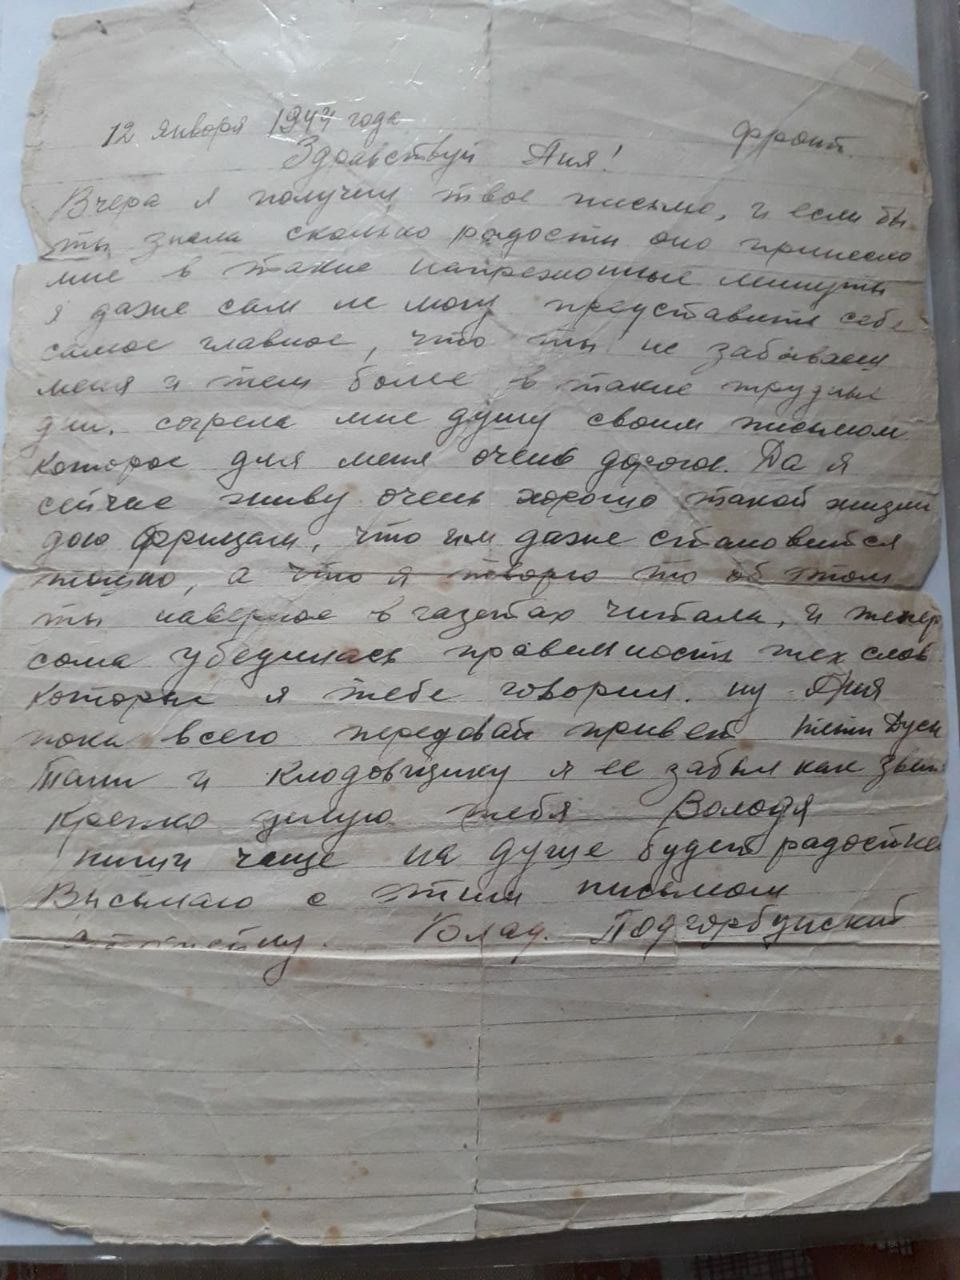 12 января 1944 года фронт.
Здравствуй Аня!
Вчера я получил твое письмо, и если бы
ты знала сколько радости оно принесло
мне в такие напряжонные минуты
я даже сам не могу представить себе
самое главное, что ты не забываеш
меня и тем более в такие трудные
дни. согрела мне душу своим письмом
которое для меня очень дорогое. Да я
сейчас живу очень хорошо такой жизни
даю фрицам, что им даже становится
тошно, а что я творю то об этом
ты наверное в газетах читала, и тепер
сама убедилась правельности тех слов
которые я тебе говорил. ну Аня
пока всего передовай привет тети Дусе
Тани и Кладовщику я ее забыл как звать
крепко целую тебя Володя
пиши чаще на душе будет радостнее
Высылаю с этим письмом
Влад. Подгорбунский